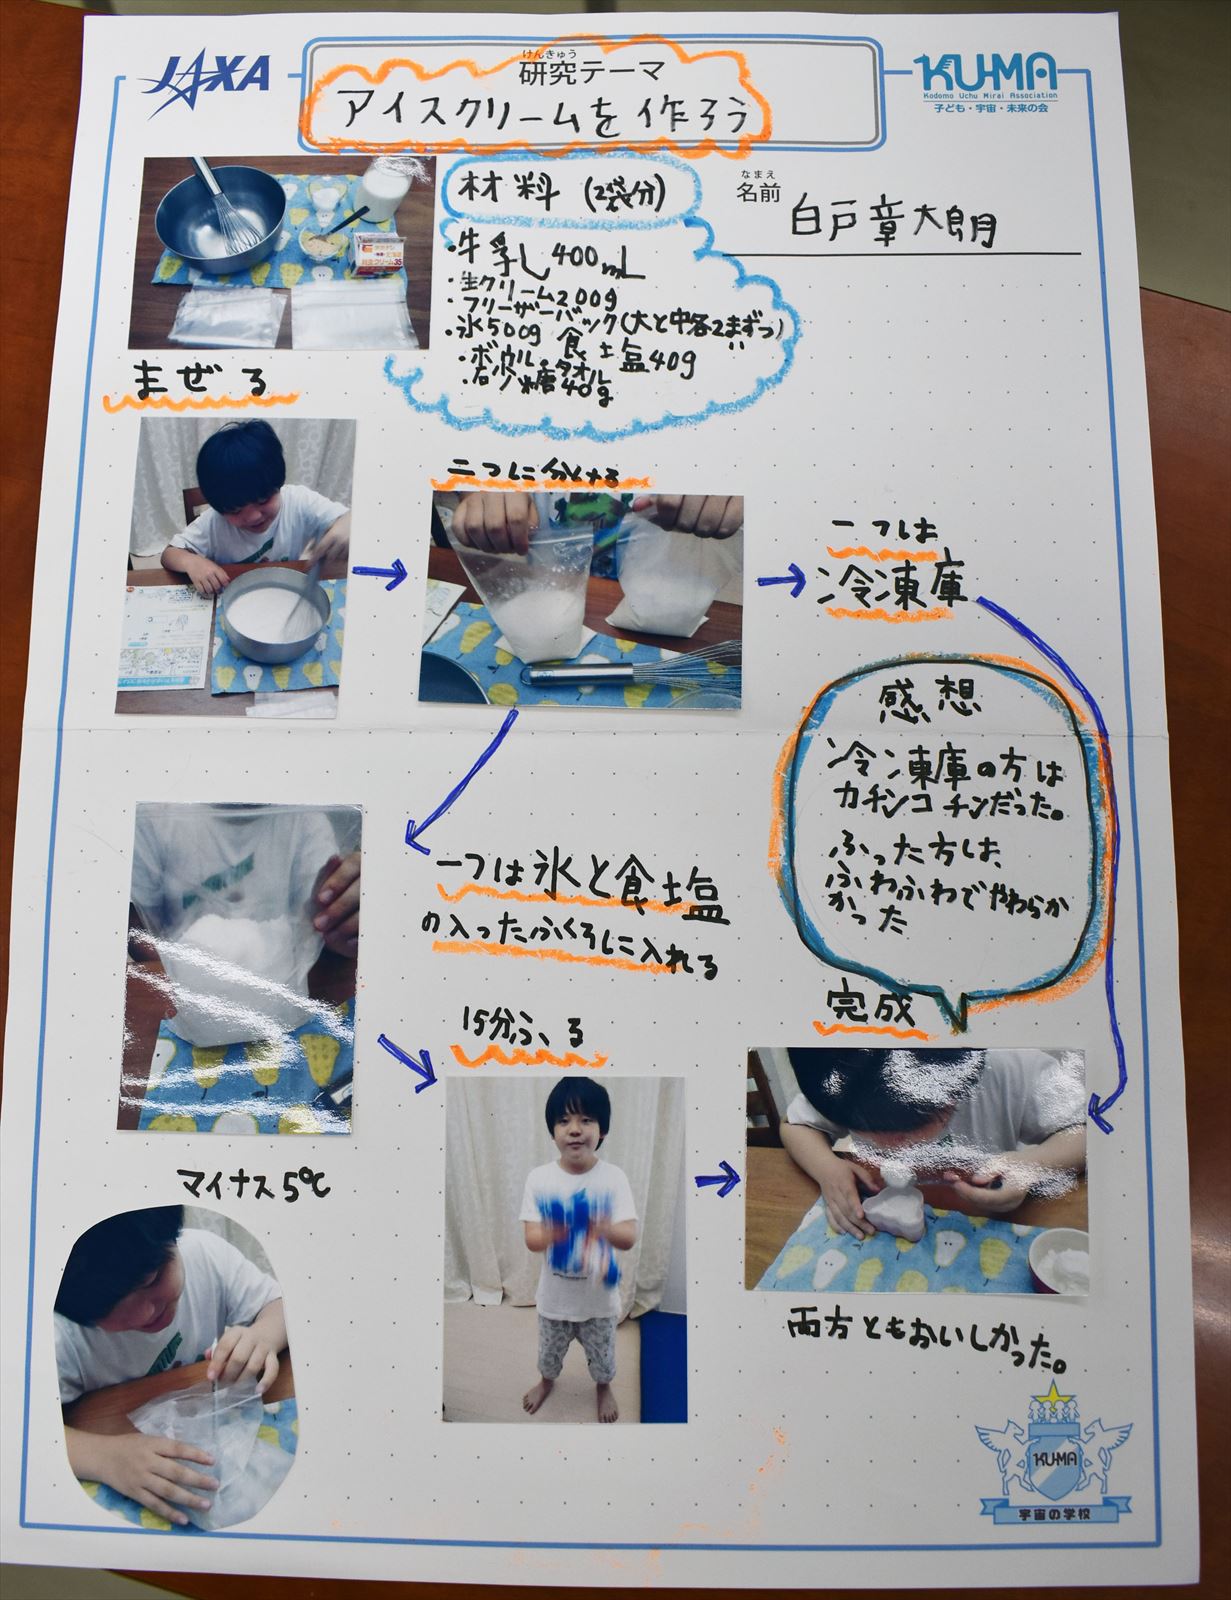 JAXA
けんきゅう
研究テーマ
アイスクリームを作ろう
KU-MA
Kodomo Uchu Mirai Association
子ども・宇宙・未来の会
なまえ
名前
白戸章太朗
材料 (2袋分)
・牛乳 400mL
・生クリーム200g
・フリーザーバック(大と中各2まいずつ)
・氷500g 食塩40g
・ボウル・タオル
・砂糖40g
まぜる
二つに分ける
一つは
冷凍庫
感想
冷凍庫の方は
カチンコチンだった。
ふった方は、
ふわふわでやわらか
かった
一つは氷と食塩
の入ったふくろに入れる
15分ふる
完成
マイナス5℃
両方ともおいしかった。
KU-MA
宇宙の学校